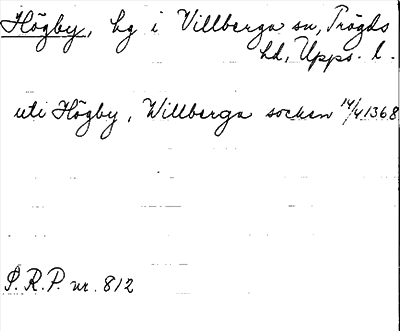 Högby, hg i Villberga sn, Trögds
hd, Upps. l.
uti Högby, Willberga socken 14/4 1368
S.R.P. nr. 812